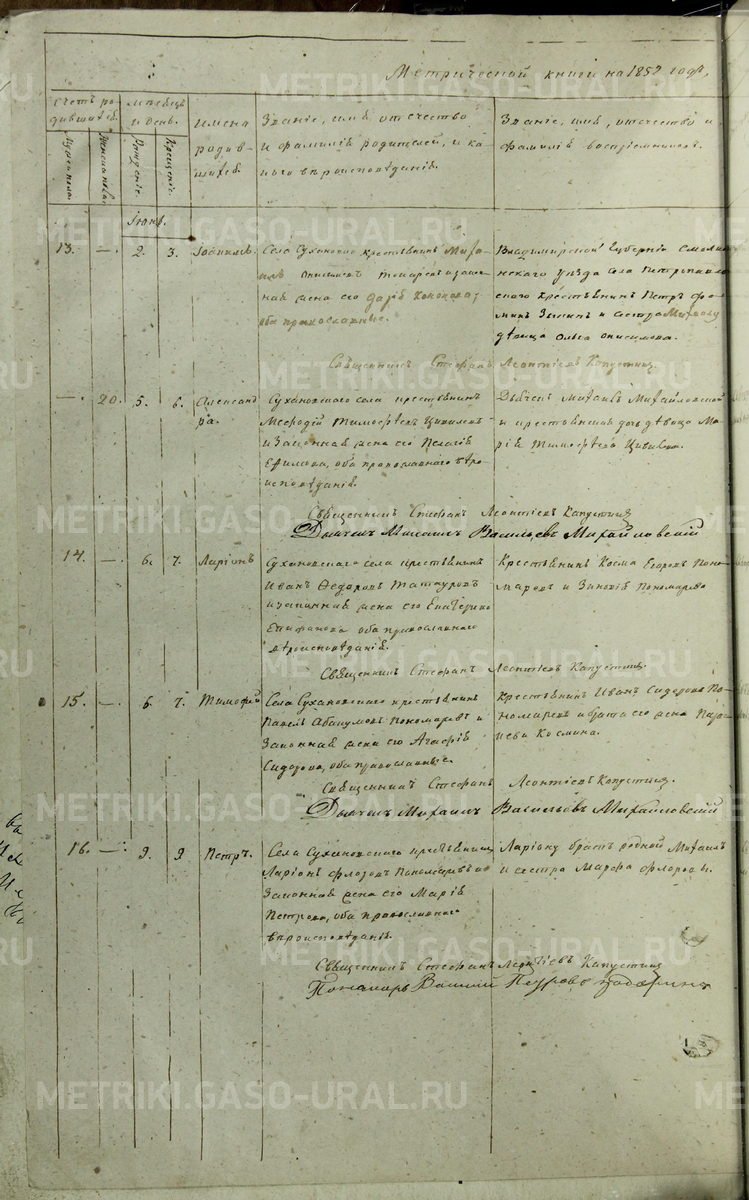 Метрической книги на 1857 годъ,
Счетъ ро- дившихся. Мѣсяцъ и день. Имена родив- шихся. Званіе, имя, отечество и фамилія родителей, и ка- кого вѣроисповѣданія. Званіе, имя, отечество и фамилія воспріемниковъ.
Мужеска Женска Рожденіе. Крещеніе.
Іюнь.
13. — 2. 3. Села Сухановскаго крестьянинъ Миха-
илъ Онисимовъ и закон-
ная жена его Дарія
оба православные.
Владимірской Губерніи
уѣзда села
крестьянинъ Петръ
и сестра Михаилу
дѣвица Ольга Онисимова.
Священникъ Стефанъ Леонтіевъ Капустинъ
— 20. 5. 6. Александ-
ра.
Сухановскаго села крестьянинъ
Меѳодій Тимоѳеевъ
и законная жена его Пелагія
Ефимова, оба православнаго вѣро-
исповѣданія.
Дьячекъ Михаилъ Михайловскій
и крестьянская дочь дѣвица Ма-
рія Тимоѳеева
Священникъ Стефанъ Леонтіевъ Капустинъ
Дьячекъ Михаилъ Васильевъ Михайловскій
14. — 6. 7. Ларіонъ
Сухановскаго села крестьянинъ
Иванъ Ѳедоровъ Татауровъ
и законная жена его Екатерина
Епифанова оба православнаго
вѣроисповѣданія.
Крестьянинъ Косма Егоровъ Поно-
маревъ и Зиновія Пономарева
Священникъ Стефанъ Леонтіевъ Капустинъ.
15. — 6. 7. Тимофей
Села Сухановскаго крестьянинъ
Павелъ Абакумовъ Пономаревъ и
законная жена его Агафія
Сидорова, оба православные.
Крестьянинъ Иванъ Сидоровъ По-
номаревъ и брата его жена Пара-
Космина.
Священникъ Стефанъ Леонтіевъ Капустинъ.
Дьячекъ Михаилъ Васильевъ Михайловскій
16. — 9. 9. Петръ.
Села Сухановскаго крестьянинъ
Ларіонъ Флоровъ Пономаревъ и
законная жена его Марія
Петрова, оба православнаго
вѣроисповѣданія.
Ларіону братъ родной Михаилъ
и сестра Марфа Флоровы.
Священникъ Стефанъ Леонтіевъ Капустинъ
Пономарь Василій Петровъ
METRIKI.GASO-URAL.RU